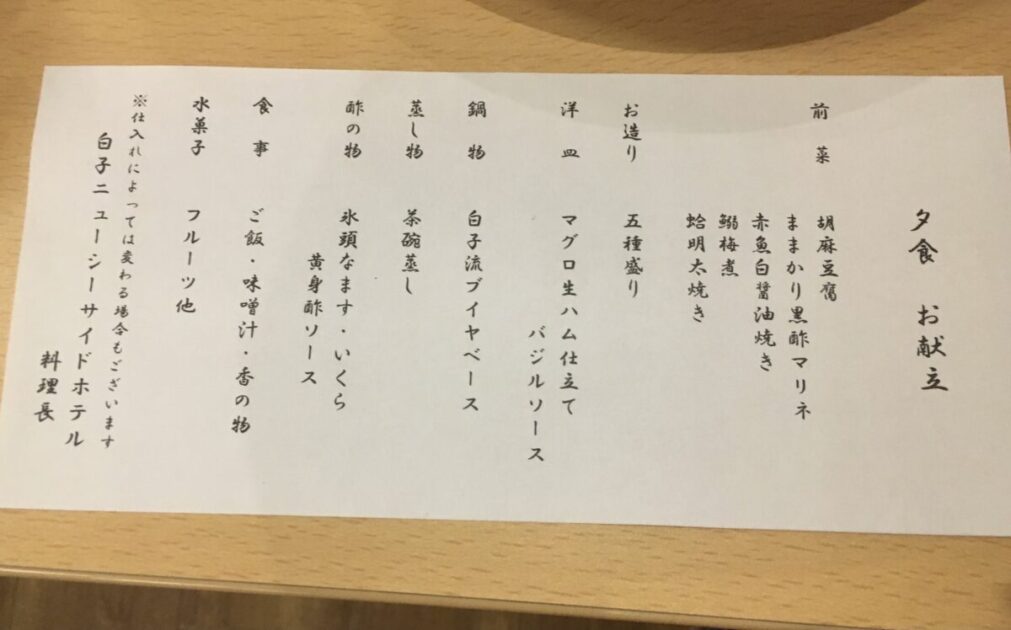 夕食 お献立
前菜 胡麻豆腐
ままかり黒酢マリネ
赤魚白醤油焼き
鰯梅煮
蛤明太焼き
お造り 五種盛り
洋皿 マグロ生ハム仕立て
バジルソース
鍋物 白子流ブイヤベース
蒸し物 茶碗蒸し
酢の物 氷頭なます・いくら
黄身酢ソース
食事 ご飯・味噌汁・香の物
水菓子 フルーツ他
※仕入れによっては変わる場合もございます
白子ニューシーサイドホテル
料理長